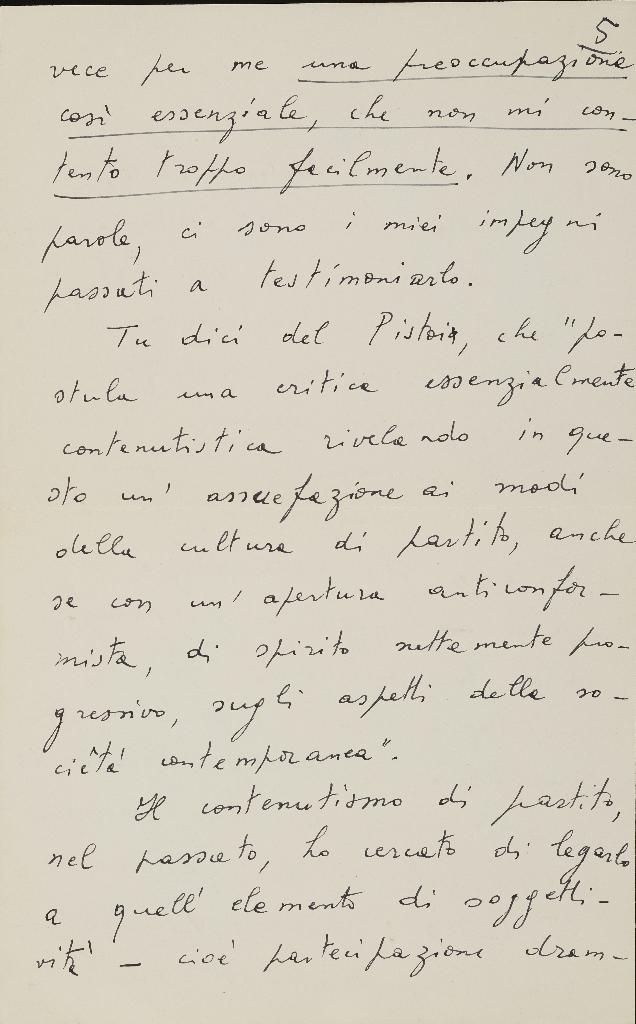 5
vece per me una preoccupazione
così essenziale, che non mi con-
tento troppo facilmente. Non sono
parole, ci sono i miei impegni
passati a testimoniarlo.
Tu dici del Pistoia, che "po-
stula una critica essenzialmente
contenutistica rivelando in que-
sto un' assuefazione ai modi
della cultura di partito, anche
se con un' apertura anticonfor-
mista, di spirito nettamente pro-
gressivo, sugli aspetti della so-
cietà contemporanea".
Il contenutismo di partito,
nel passato, ho cercato di legarlo
a quell' elemento di soggetti-
vità - cioè partecipazione dram-